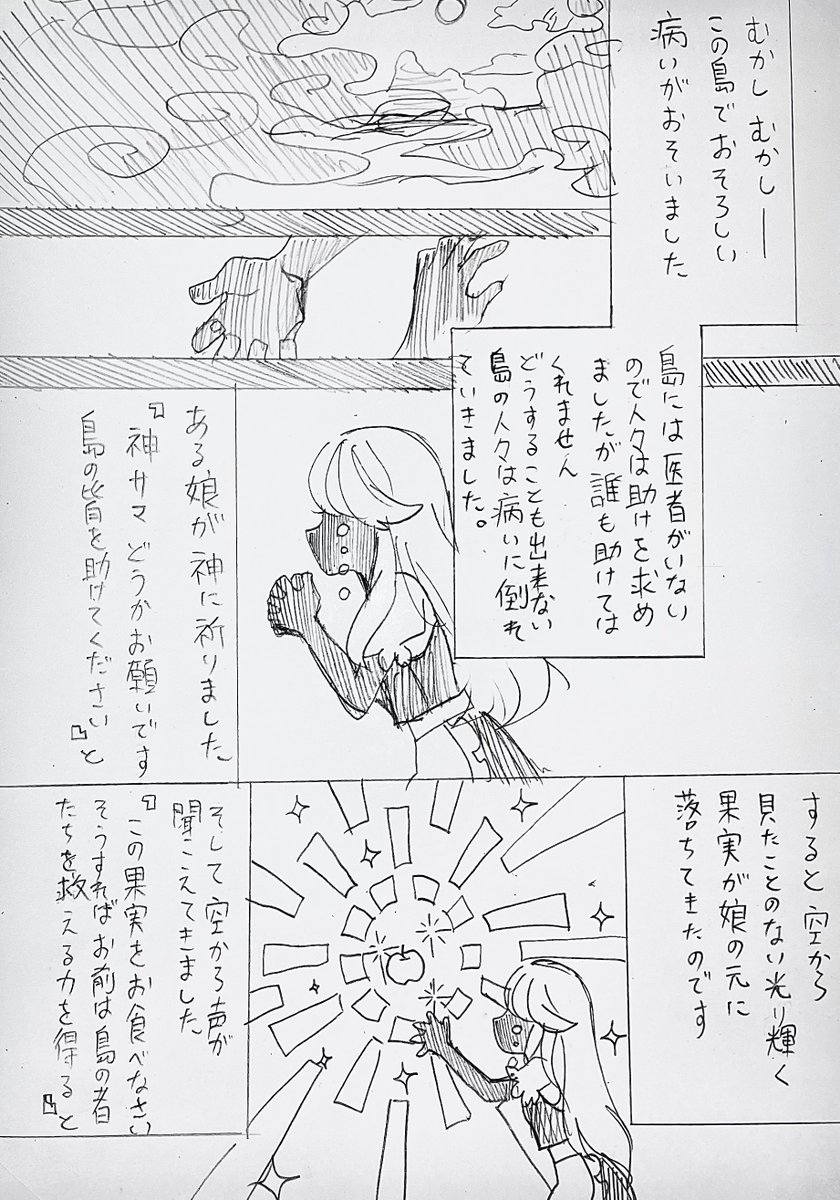 むかし むかし──
この島でおそろしい
病いがおそいました
島には医者がいない
ので人々は助けを求め
ましたが 誰も助けては
くれません
どうすることも出来ない
島の人々は病いに倒れ
ていきました。
ある娘が 神に祈りました
『神サマ どうかお願いです
島の皆を助けてください』と
すると 空から
見たことのない光り輝く
果実が娘の元に
落ちてきたのです
そして 空から声が
聞こえてきました
『この果実をお食べなさい
そうすればお前は島の者
たちを救える力を得る』と